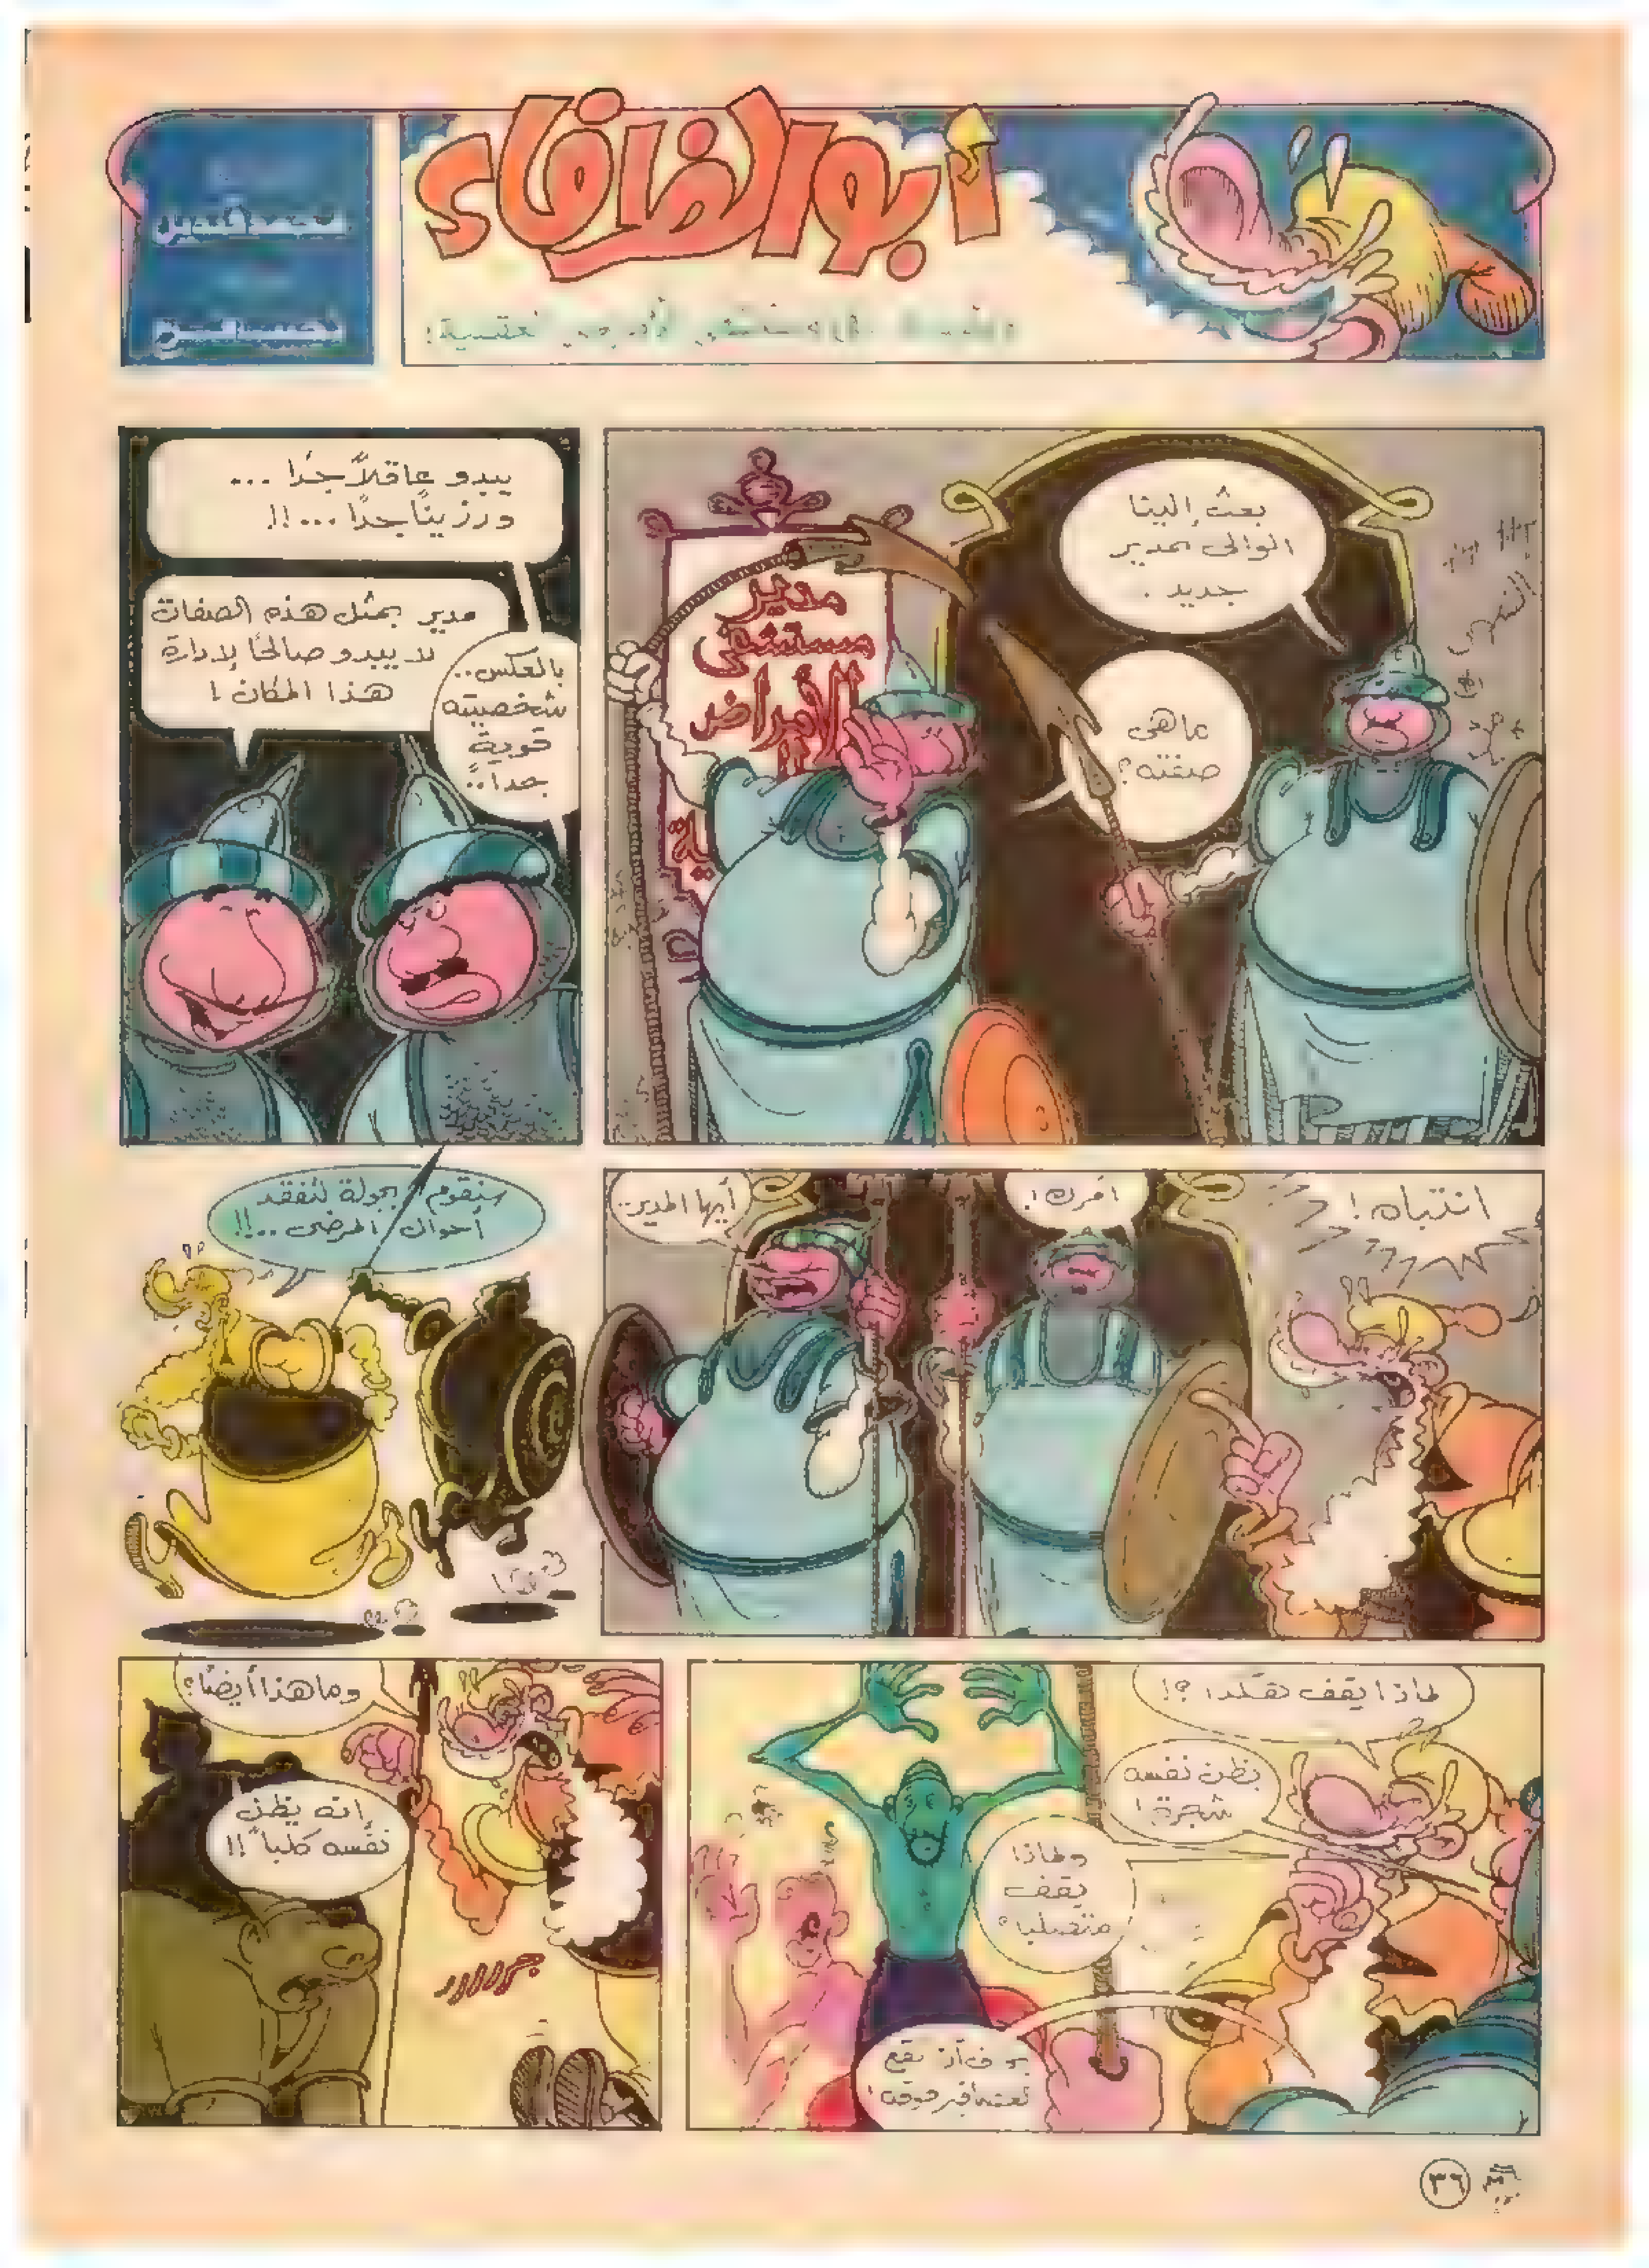 أبو الظرفاء
بعث إلينا
الوالى بمدير
جديد .
ما هى
صفته؟
مدير
مستشفى
الأمراض
يبدو عاقلاً جدًا ...
ورزينًا جدًا ...!!
مدير بمثل هذه الصفات
لا يبدو صالحًا لإدارة
هذا المكان !
بالعكس..
شخصيته
قوية
جدًا..
انتباه !
أمرك !
أيها المدير..
سنقوم بجولة لنفقد
أحوال المرضى ..!!
لماذا يقف هكذا ؟!
يظن نفسه
شجرة !
ولماذا
يقف
متصلبا؟
أن تقع
وما هذا أيضًا؟
إنه يظن
نفسه كلبًا !!
جررررر
٣٦